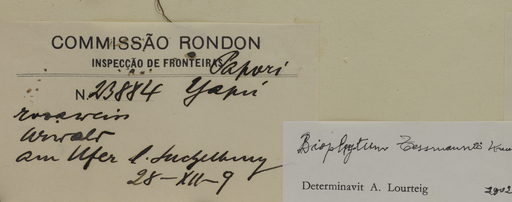 COMMISSÃO RONDON
INSPECÇÃO DE FRONTEIRAS
Papori
N. 23884 Yapú
rosaweiss
Urwald
am Ufer l.
28-XII-9
Biophytum Zessmannii
Determinavit A. Lourteig